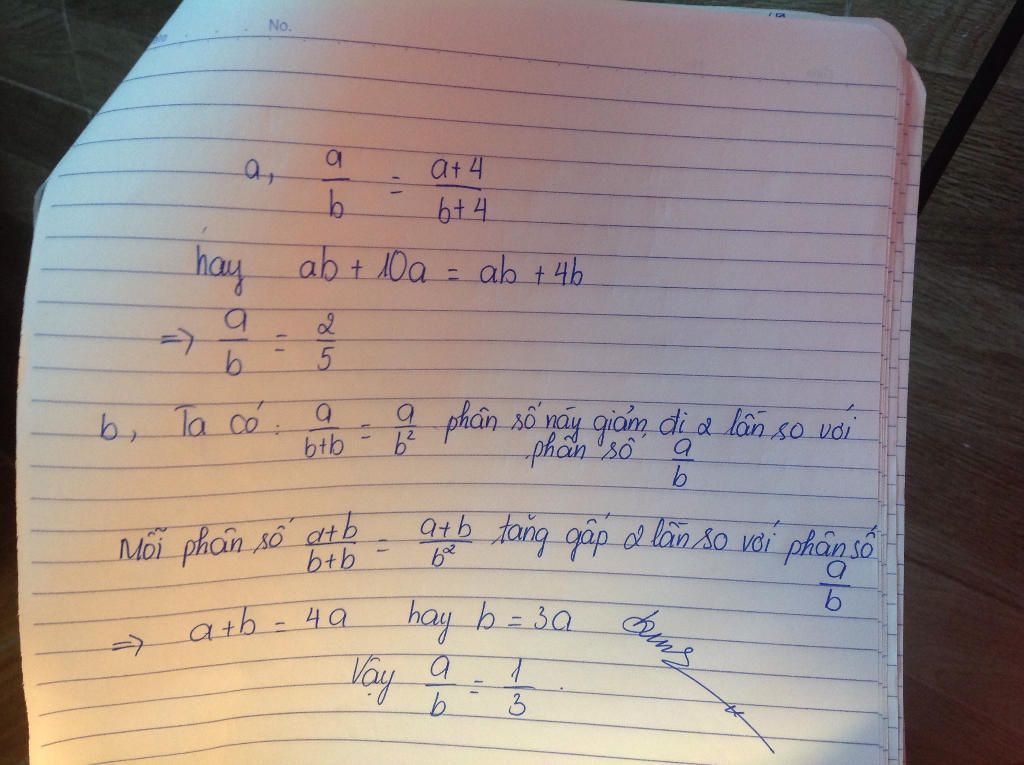 No.
a, a/b = a+4/b+4
hay ab + 10a = ab + 4b
=> a/b = 2/5
b, Ta có: a/b+b = a/b² phân số này giảm đi 2 lần so với
phân số a/b
Mỗi phân số a+b/b+b = a+b/b² tăng gấp 2 lần so với phân số
a/b
=> a+b = 4a hay b = 3a
Vậy a/b = 1/3.